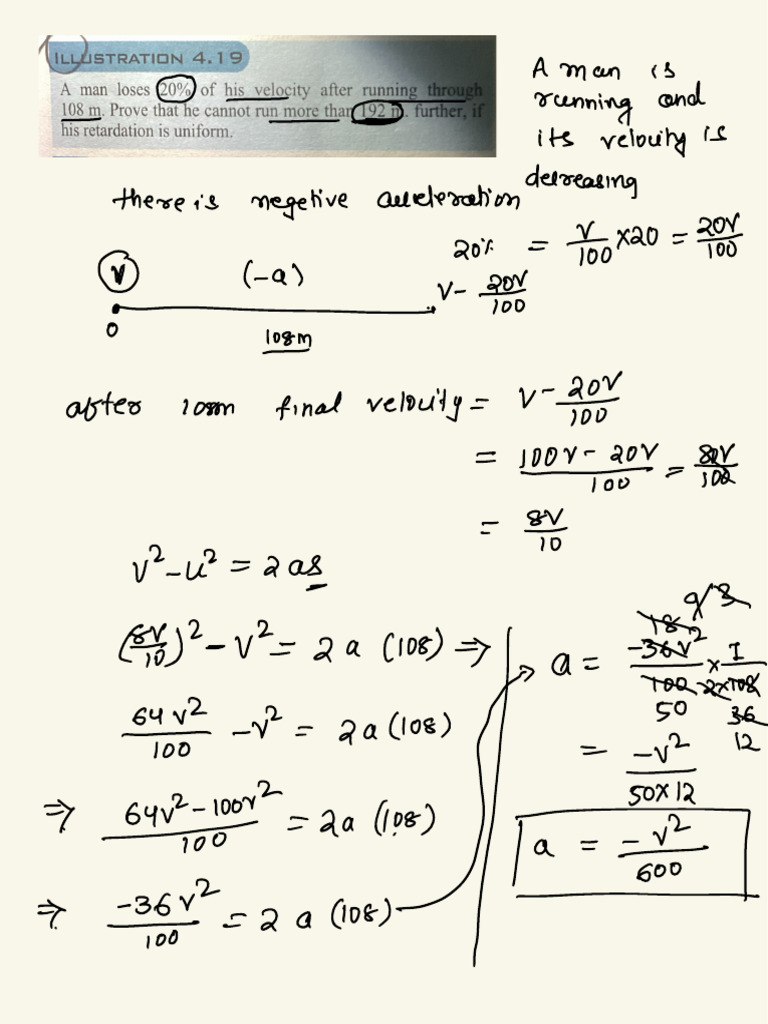 ILLUSTRATION 4.19
A man loses 20% of his velocity after running through
108 m. Prove that he cannot run more than 192 m. further, if
his retardation is uniform.
A man is
running and
its velocity is
decreasing
there is negetive acceleration
20% = V/100 ×20 = 20V/100
V (-a) V - 20V/100
0 108m
after 108m final velocity = V - 20V/100
= 100V - 20V/100 = 80V/100
= 8V/10
v² - u² = 2as
(8V/10)² - V² = 2a (108) ⇒
64V²/100 - V² = 2a(108)
⇒ 64V² - 100V²/100 = 2a (108)
⇒ -36V²/100 = 2a (108)
a = -36V²/100 × 1/2×108
18 9 3
50 36
12
= -V²/50×12
a = -V²/600